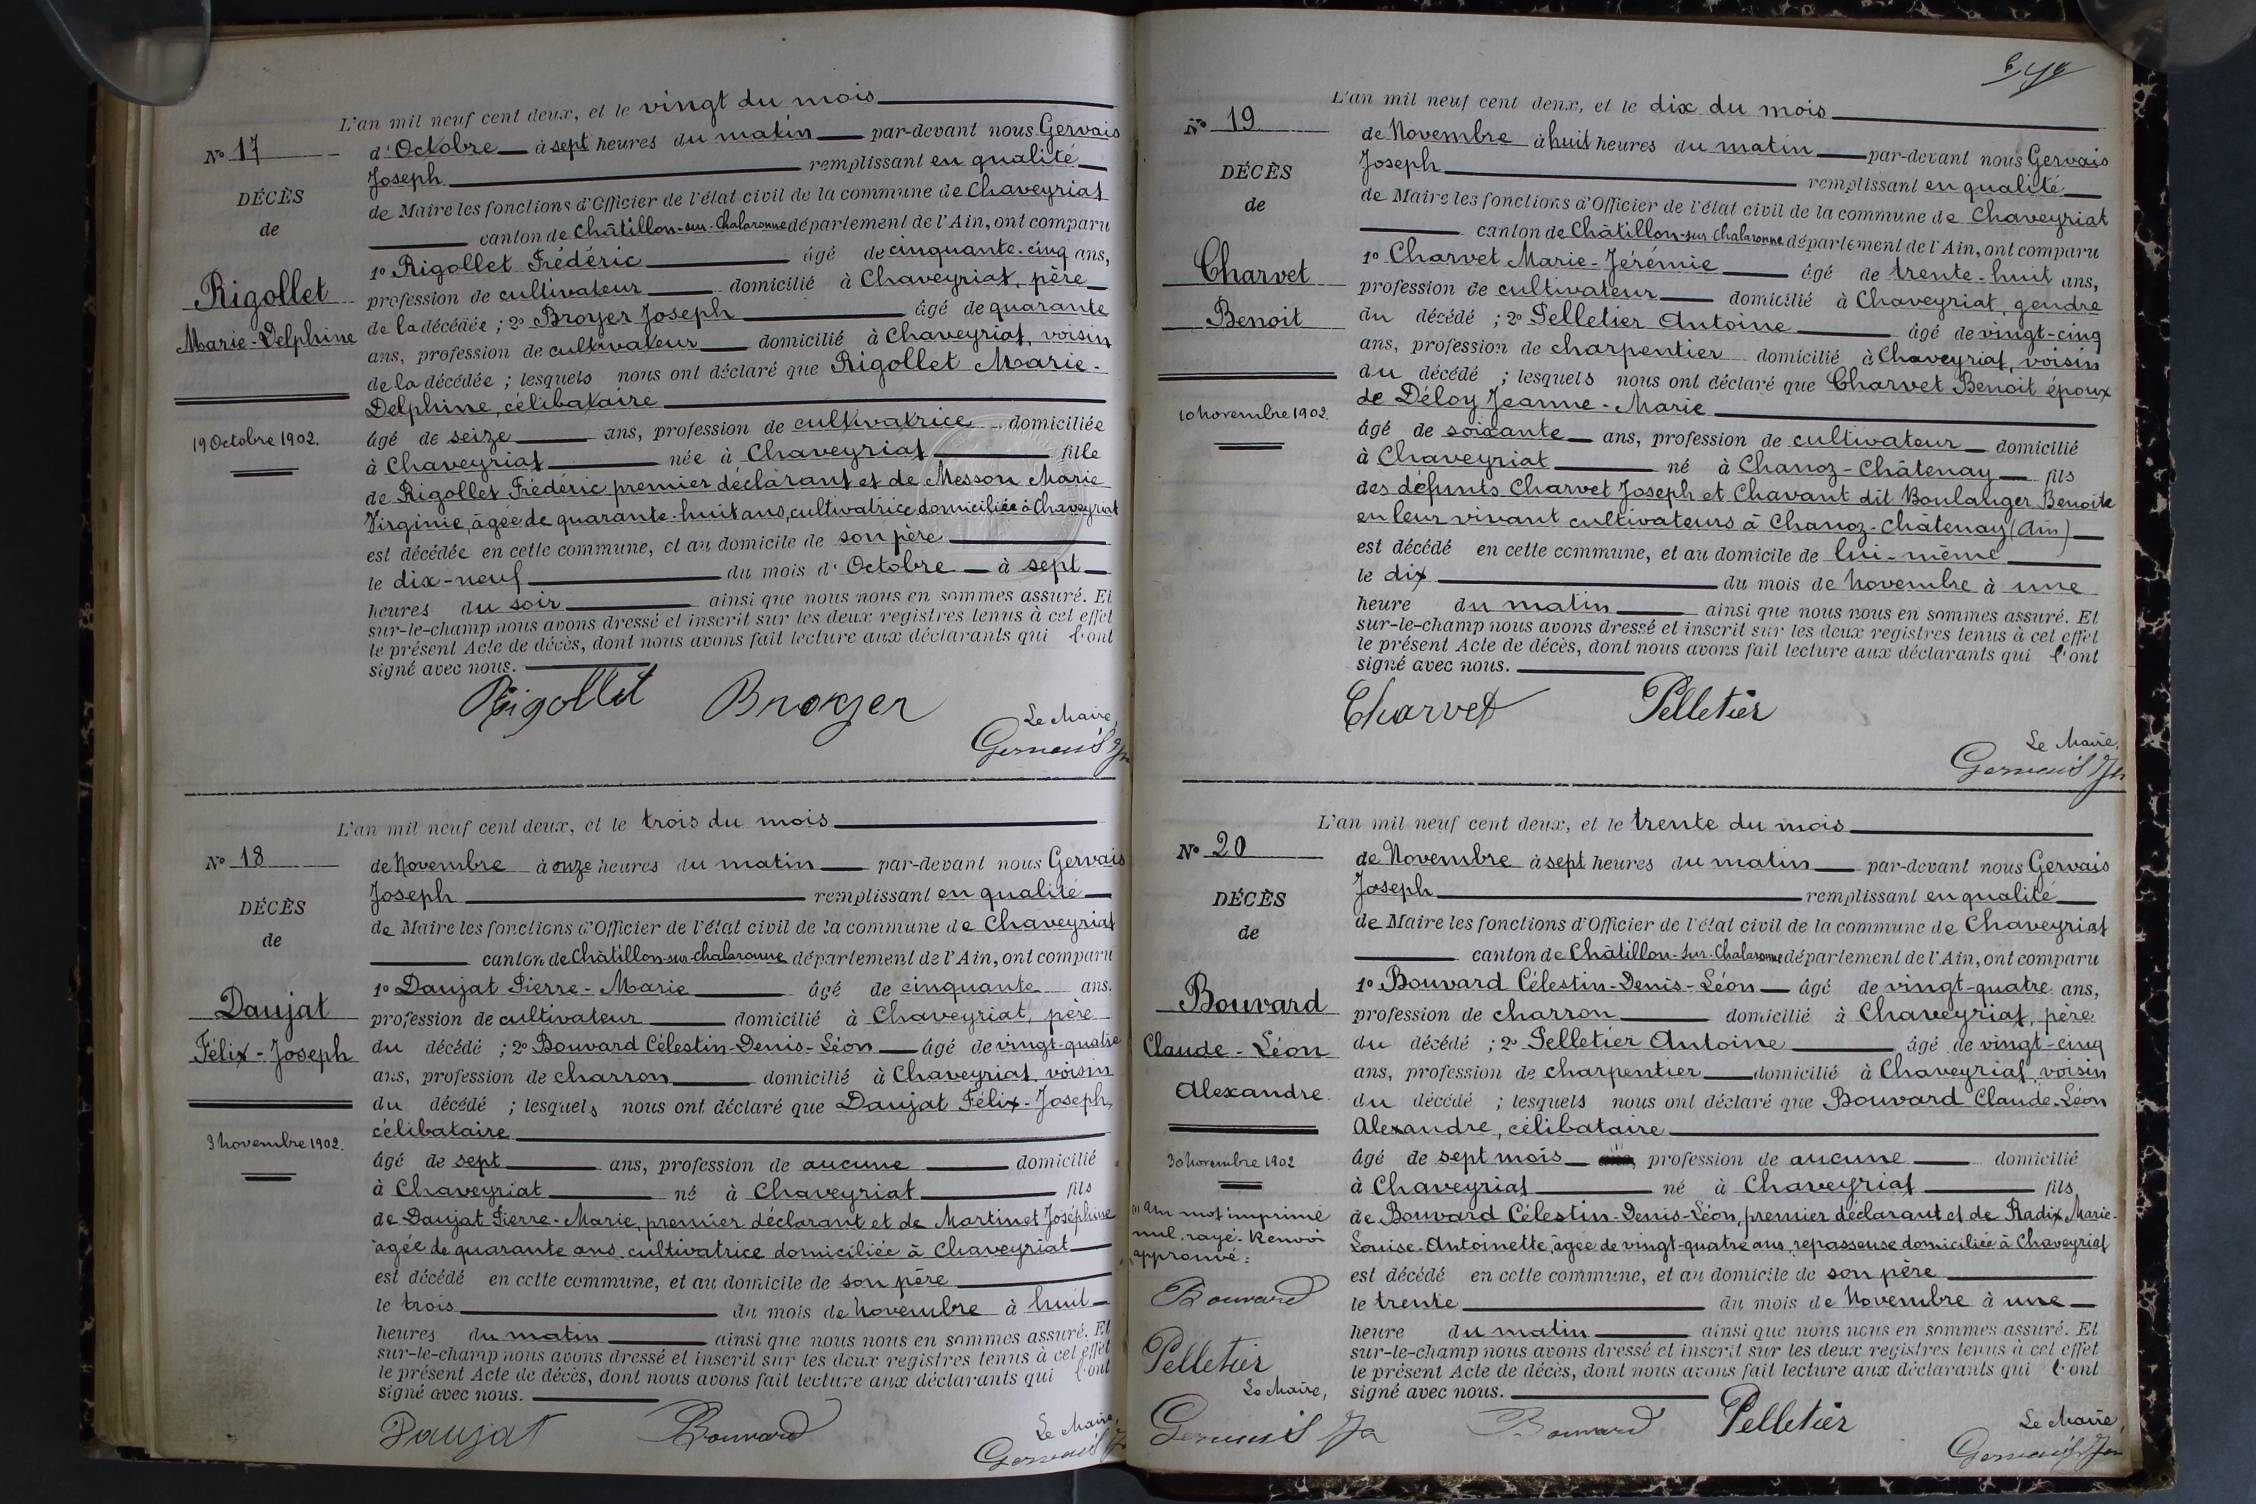 L'an mil neuf cent deux, et le vingt du mois
N° 17
d'Octobre à sept heures du matin par-devant nous Gervais
Joseph remplissant en qualité
DÉCÈS
de Maire les fonctions d'Officier de l'état civil de la commune de Chaveyriat
de
canton de Châtillon-sur-Chalaronne département de l'Ain, ont comparu
1° Rigollet Frédéric âgé de cinquante-cinq ans,
Rigollet
profession de cultivateur domicilié à Chaveyriat, père
de la décédée ; 2° Broyer Joseph âgé de quarante
Marie-Delphine
ans, profession de cultivateur domicilié à Chaveyriat, voisin
de la décédée ; lesquels nous ont déclaré que Rigollet Marie-
Delphine, célibataire
19 Octobre 1902.
âgé de seize ans, profession de cultivatrice domiciliée
à Chaveyriat née à Chaveyriat fille
de Rigollet Frédéric, premier déclarant et de Messon Marie
Virginie, âgée de quarante-huit ans, cultivatrice domiciliée à Chaveyriat
est décédée en cette commune, et au domicile de son père
le dix-neuf du mois d'Octobre à sept
heures du soir ainsi que nous nous en sommes assuré. Et
sur-le-champ nous avons dressé et inscrit sur les deux registres tenus à cet effet
le présent Acte de décès, dont nous avons fait lecture aux déclarants qui l'ont
signé avec nous.
Rigollet Broyer
Le Maire,
Gervais Jh
L'an mil neuf cent deux, et le trois du mois
N° 18
de Novembre à onze heures du matin par-devant nous Gervais
Joseph remplissant en qualité
DÉCÈS
de Maire les fonctions d'Officier de l'état civil de la commune de Chaveyriat
de
canton de Châtillon-sur-Chalaronne département de l'Ain, ont comparu
1° Daujat Pierre-Marie âgé de cinquante ans.
Daujat
profession de cultivateur domicilié à Chaveyriat, père
Félix-Joseph
du décédé ; 2° Bouvard Célestin-Denis-Léon âgé de vingt-quatre
ans, profession de charron domicilié à Chaveyriat, voisin
du décédé ; lesquels nous ont déclaré que Daujat Félix-Joseph,
célibataire
3 Novembre 1902.
âgé de sept ans, profession de aucune domicilié
à Chaveyriat né à Chaveyriat fils
de Daujat Pierre-Marie, premier déclarant et de Martinet Joséphine
âgée de quarante ans, cultivatrice domiciliée à Chaveyriat
est décédé en cette commune, et au domicile de son père
le trois du mois de Novembre à huit
heures du matin ainsi que nous nous en sommes assuré. Et
sur-le-champ nous avons dressé et inscrit sur les deux registres tenus à cet effet
le présent Acte de décès, dont nous avons fait lecture aux déclarants qui l'ont
signé avec nous.
Daujat Bouvard
Le Maire,
Gervais
L'an mil neuf cent deux, et le dix du mois
N° 19
de Novembre à huit heures du matin par-devant nous Gervais
Joseph remplissant en qualité
DÉCÈS
de Maire les fonctions d'Officier de l'état civil de la commune de Chaveyriat
de
canton de Châtillon-sur-Chalaronne département de l'Ain, ont comparu
1° Charvet Marie-Jérémie âgé de trente-huit ans,
Charvet
profession de cultivateur domicilié à Chaveyriat, gendre
Benoit
du décédé ; 2° Pelletier Antoine âgé de vingt-cinq
ans, profession de charpentier domicilié à Chaveyriat, voisin
du décédé ; lesquels nous ont déclaré que Charvet Benoit époux
de Déloy Jeanne-Marie
10 Novembre 1902.
âgé de soixante ans, profession de cultivateur domicilié
à Chaveyriat né à Chanoz-Châtenay fils
des défunts Charvet Joseph et Chavant dit Boulanger Benoite
en leur vivant cultivateurs à Chanoz-Châtenay (Ain)
est décédé en cette commune, et au domicile de lui-même
le dix du mois de Novembre à une
heure du matin ainsi que nous nous en sommes assuré. Et
sur-le-champ nous avons dressé et inscrit sur les deux registres tenus à cet effet
le présent Acte de décès, dont nous avons fait lecture aux déclarants qui l'ont
signé avec nous.
Charvet Pelletier
Le Maire,
Gervais Jh
L'an mil neuf cent deux, et le trente du mois
N° 20
de Novembre à sept heures du matin par-devant nous Gervais
Joseph remplissant en qualité
DÉCÈS
de Maire les fonctions d'Officier de l'état civil de la commune de Chaveyriat
de
canton de Châtillon-sur-Chalaronne département de l'Ain, ont comparu
1° Bouvard Célestin-Denis-Léon âgé de vingt-quatre ans,
Bouvard
profession de charron domicilié à Chaveyriat, père
Claude-Léon
du décédé ; 2° Pelletier Antoine âgé de vingt-cinq
ans, profession de charpentier domicilié à Chaveyriat, voisin
Alexandre.
du décédé ; lesquels nous ont déclaré que Bouvard Claude-Léon
Alexandre, célibataire
30 Novembre 1902
âgé de sept mois ans, profession de aucune domicilié
à Chaveyriat né à Chaveyriat fils
(1) Un mot imprimé
nul rayé. Renvoi
approuvé :
de Bouvard Célestin-Denis-Léon, premier déclarant et de Radix Marie-
Louise-Antoinette, âgée de vingt-quatre ans, repasseuse domiciliée à Chaveyriat
est décédé en cette commune, et au domicile de son père
le trente du mois de Novembre à une
heure du matin ainsi que nous nous en sommes assuré. Et
sur-le-champ nous avons dressé et inscrit sur les deux registres tenus à cet effet
le présent Acte de décès, dont nous avons fait lecture aux déclarants qui l'ont
signé avec nous.
Bouvard
Pelletier
Le Maire,
Gervais Jh
Bouvard Pelletier
Le Maire
Gervais Jh